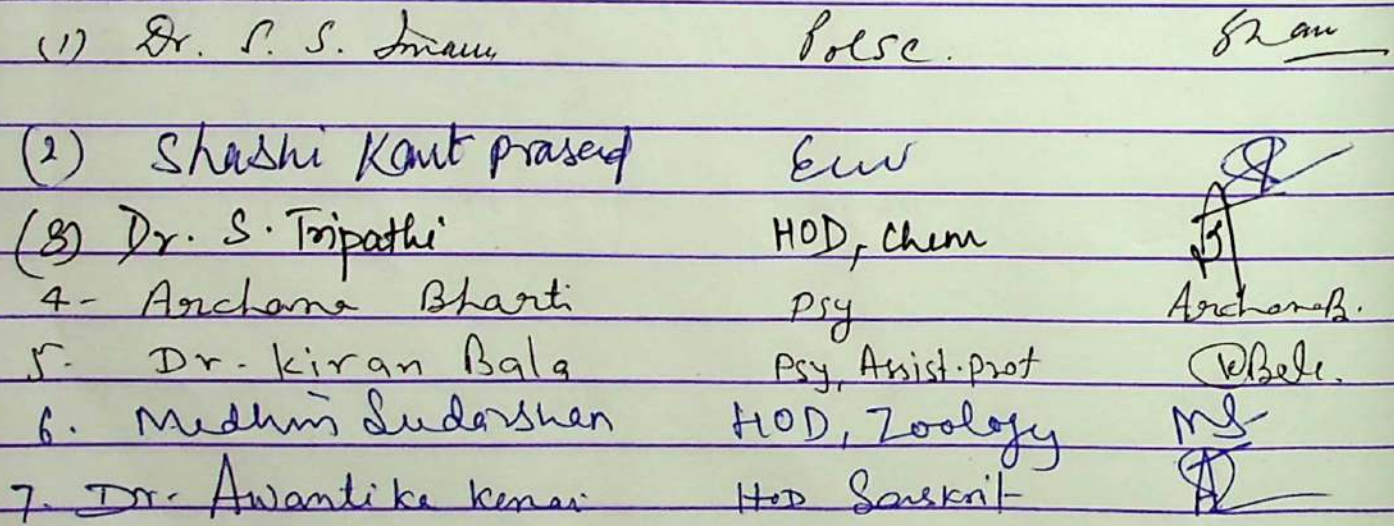 (1) Dr. S. S. Imam Polsc.
(2) Shashi Kant prasad
(3) Dr. S. Tripathi HOD, Chem
4- Archana Bharti Psy ArchanaB.
5. Dr. Kiran Bala Psy, Assist. prof KBala.
6. Sudarshan HOD, Zoology MS
7. Dr. Awantika HOD Sanskrit